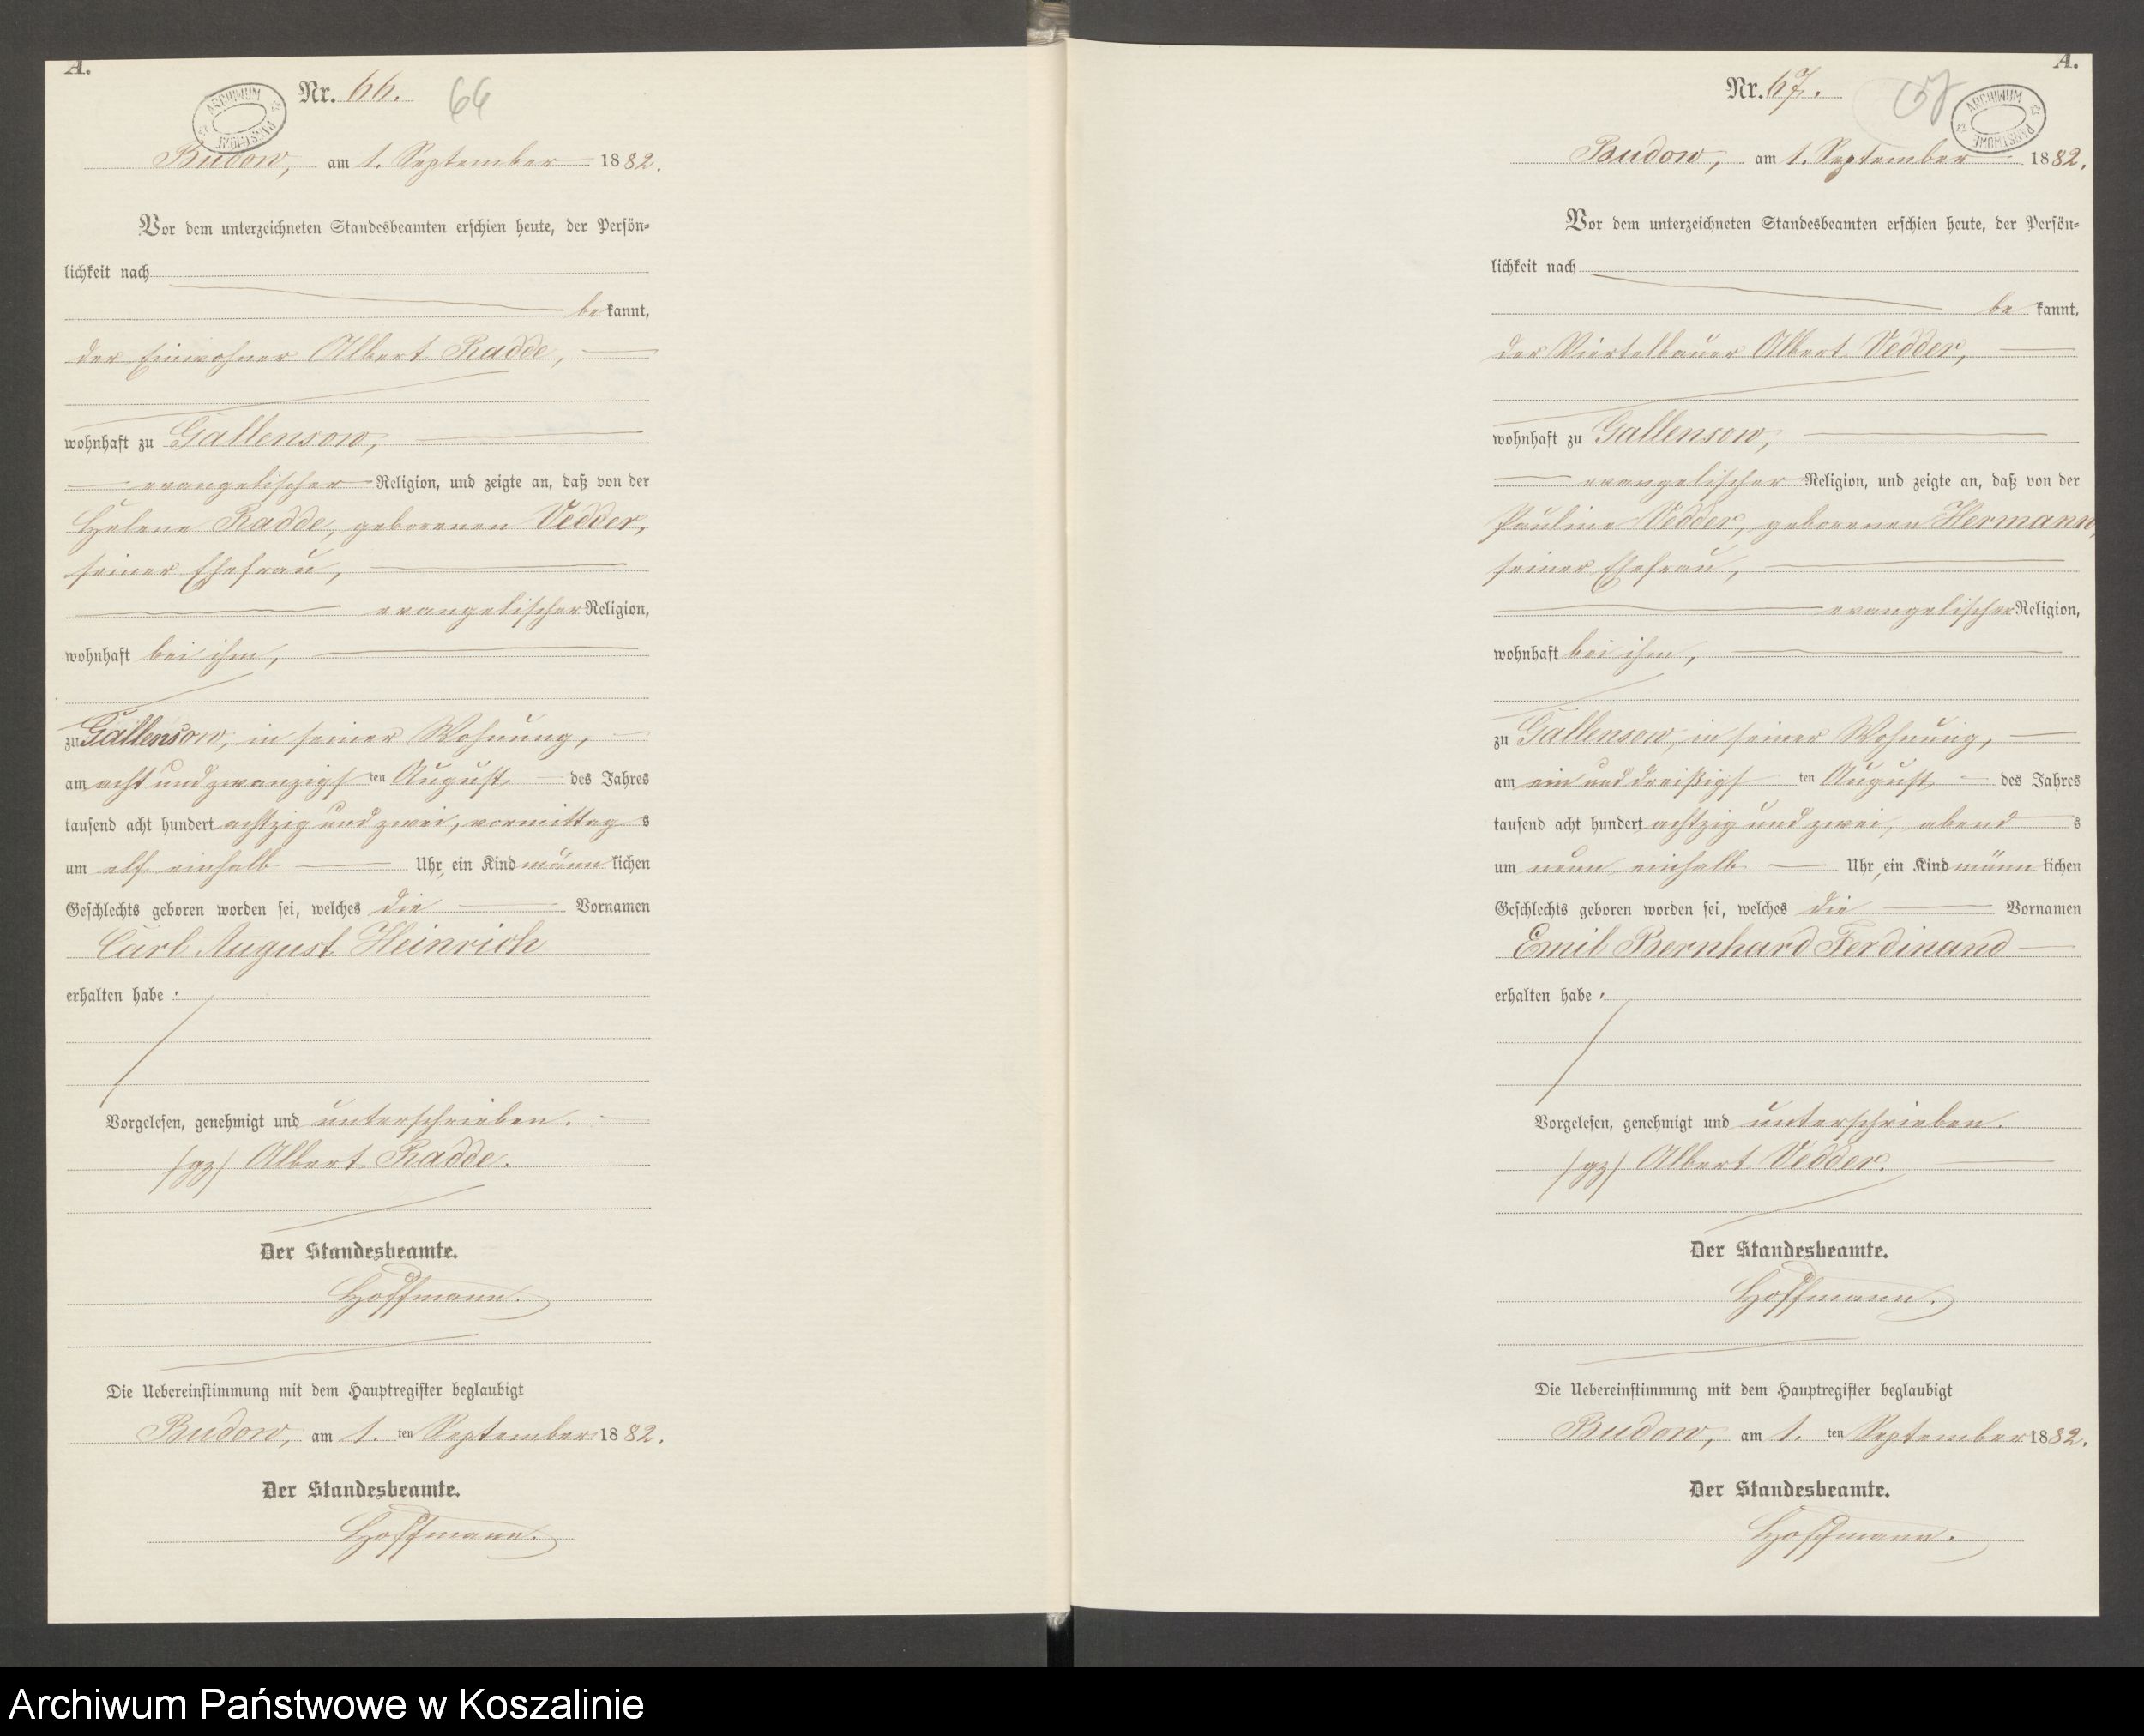 A.
Nr. 66. 66
ARCHIWUM PAŃSTWOWE
Budow, am 1. September 1882.
Vor dem unterzeichneten Standesbeamten erschien heute, der Persön-
lichkeit nach
be kannt,
der Einwohner Albert Radde,
wohnhaft zu Gallensow,
evangelischer Religion, und zeigte an, daß von der
Helene Radde, geborenen Vedder,
seiner Ehefrau,
evangelischer Religion,
wohnhaft bei ihm,
zu Gallensow, in seiner Wohnung,
am acht und zwanzigsten August des Jahres
tausend acht hundert achtzig und zwei, vormittags
um elf einhalb Uhr, ein Kind männlichen
Geschlechts geboren worden sei, welches die Vornamen
Carl August Heinrich
erhalten habe.
Vorgelesen, genehmigt und unterschrieben.
(gz) Albert Radde.
Der Standesbeamte.
Hoffmann.
Die Uebereinstimmung mit dem Hauptregister beglaubigt
Budow, am 1. ten September 1882.
Der Standesbeamte.
Hoffmann.
A.
Nr. 67. 67
ARCHIWUM PAŃSTWOWE
Budow, am 1. September 1882.
Vor dem unterzeichneten Standesbeamten erschien heute, der Persön-
lichkeit nach
be kannt,
der Viertelbauer Albert Vedder,
wohnhaft zu Gallensow,
evangelischer Religion, und zeigte an, daß von der
Pauline Vedder, geborenen Hermann,
seiner Ehefrau,
evangelischer Religion,
wohnhaft bei ihm,
zu Gallensow, in seiner Wohnung,
am ein und dreißigsten August des Jahres
tausend acht hundert achtzig und zwei, abends
um neun einhalb Uhr, ein Kind männlichen
Geschlechts geboren worden sei, welches die Vornamen
Emil Bernhard Ferdinand
erhalten habe.
Vorgelesen, genehmigt und unterschrieben.
(gz) Albert Vedder.
Der Standesbeamte.
Hoffmann.
Die Uebereinstimmung mit dem Hauptregister beglaubigt
Budow, am 1. ten September 1882.
Der Standesbeamte.
Hoffmann.
Archiwum Państwowe w Koszalinie